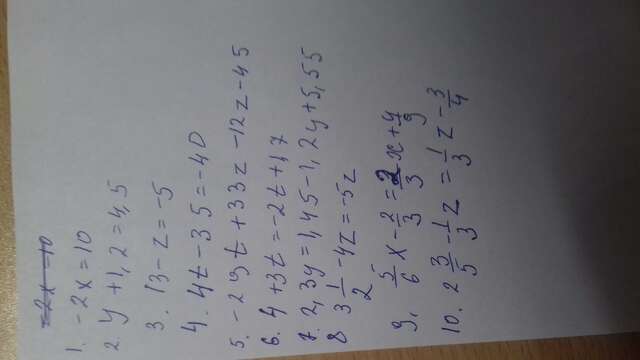 -2x=10
1. -2x=10
2. y+1,2=4,5
3. 13-z=-5
4. 4t-35=-40
5. -29t+33z-12z-45
6. 4+3t=-2t+1,7
7. 2,3y=1,45-1,2y+5,55
8 3 1/2 -4z=-5z
9. 5/6 x - 2/3 = 2/3 x + 4/9
10. 2 3/5 - 1/3 z = 1/3 z - 3/4